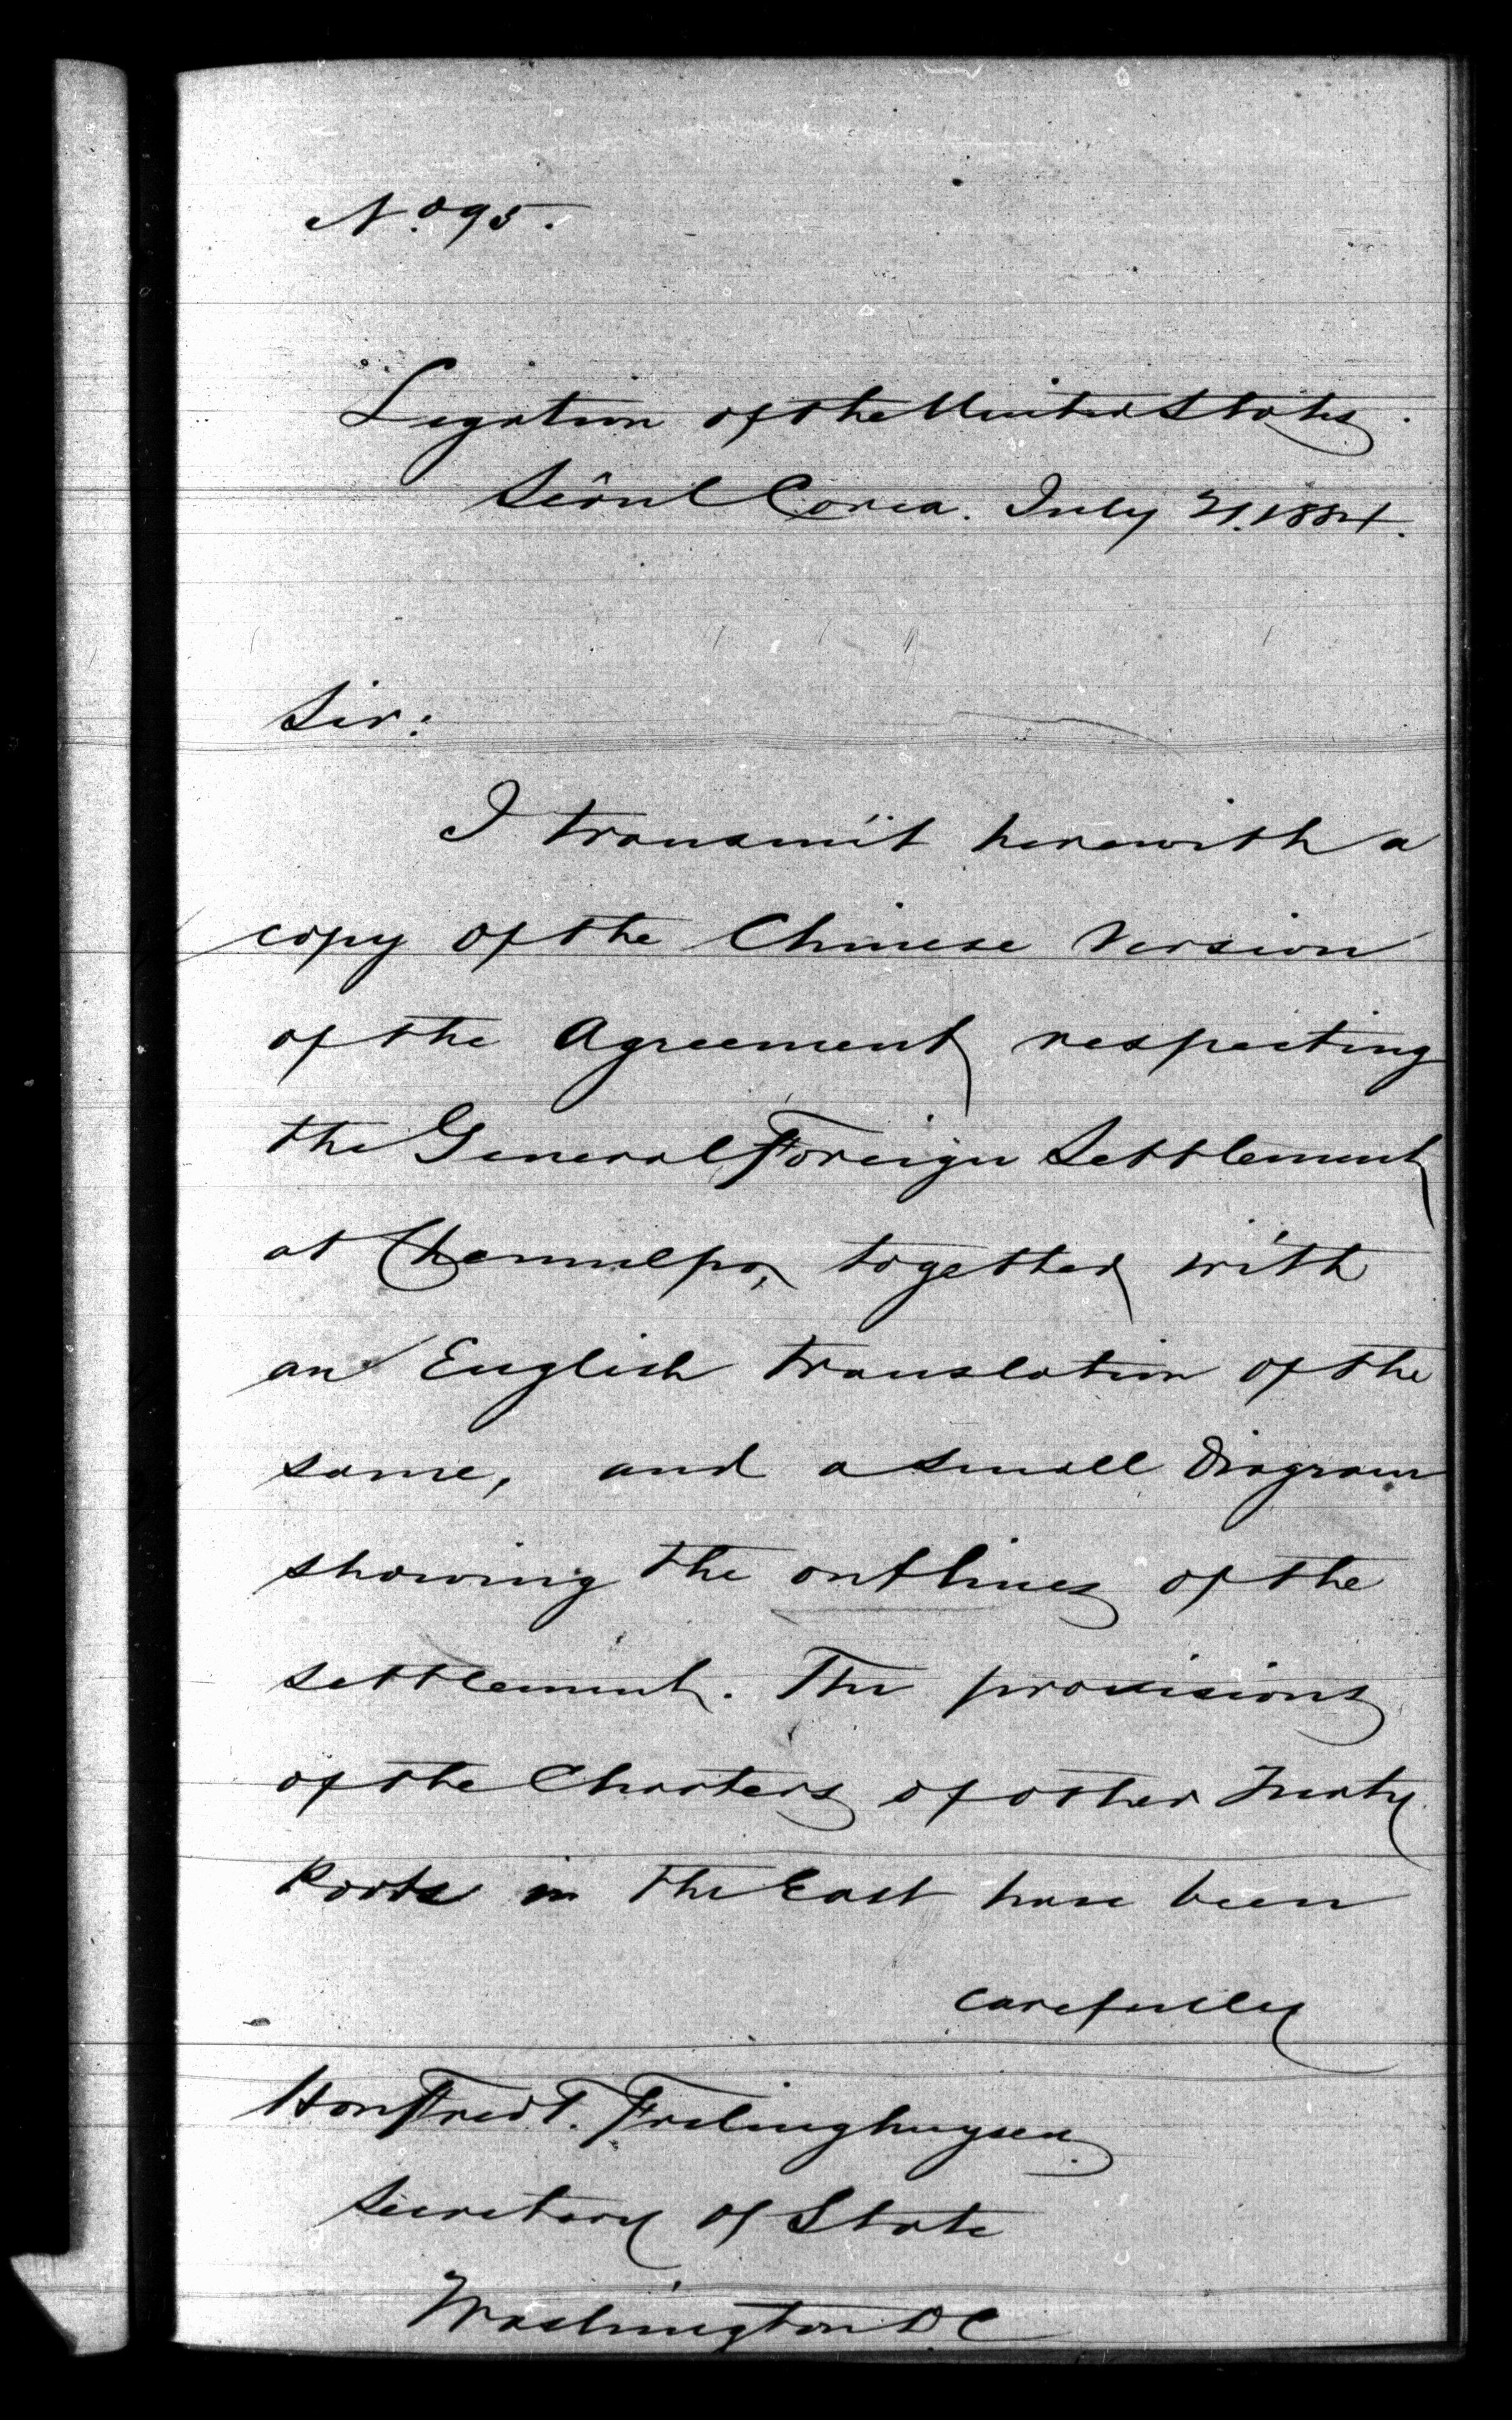 No. 95.
Legation of the United States.
Seoul Corea. July 21. 1884.
Sir:
I transmit herewith a
copy of the Chinese Version
of the Agreement respecting
the General Foreign Settlement
at Chemulpo, together with
an English translation of the
same, and a small Diagram
showing the outlines of the
settlement. The provisions
of the Charters of other Treaty
Ports in the East have been
carefully
Hon Fred T. Frelinghuysen
Secretary of State
Washington D.C